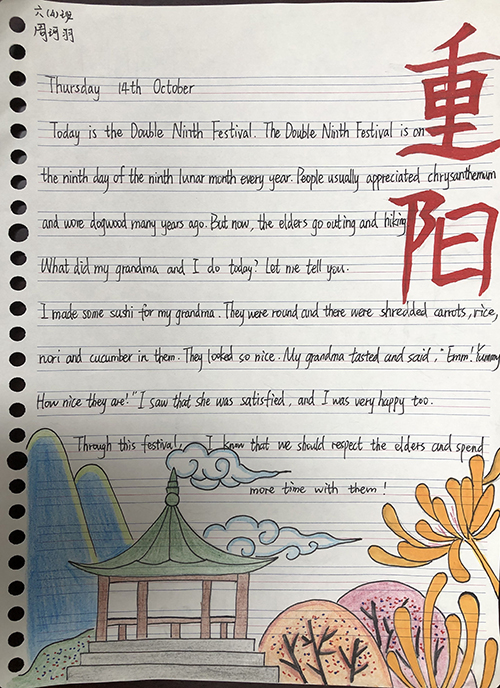 六(4)班
周珂羽
重阳
Thursday 14th October
Today is the Double Ninth Festival. The Double Ninth Festival is on
the ninth day of the ninth lunar month every year. People usually appreciated chrysanthemum
and wore dogwood many years ago. But now, the elders go outing and hiking
What did my grandma and I do today? Let me tell you.
I made some sushi for my grandma. They were round and there were shredded carrots, rice,
nori and cucumber in them. They looked so nice. My grandma tasted and said, "Emm! Yummy
How nice they are!" I saw that she was satisfied, and I was very happy too.
Through this festival, I know that we should respect the elders and spend
more time with them!